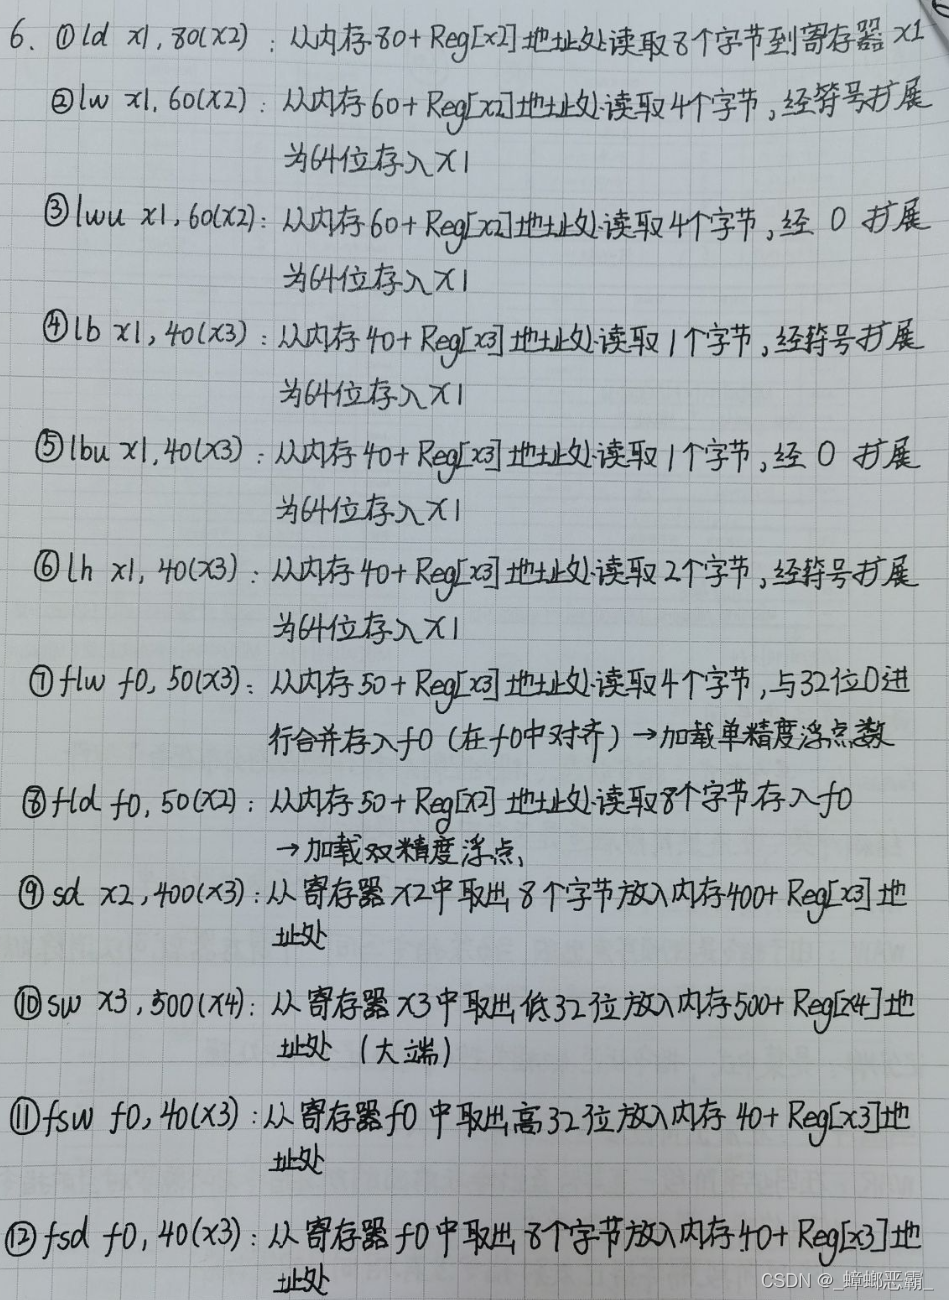 6. ①ld x1, 80(x2) : 从内存80+Reg[x2]地址处读取8个字节到寄存器x1
②lw x1, 60(x2) : 从内存60+Reg[x2]地址处读取4个字节,经符号扩展
为64位存入x1
③lwu x1, 60(x2): 从内存60+Reg[x2]地址处读取4个字节,经0扩展
为64位存入x1
④lb x1, 40(x3) : 从内存40+Reg[x3]地址处读取1个字节,经符号扩展
为64位存入x1
⑤lbu x1, 40(x3) : 从内存40+Reg[x3]地址处读取1个字节,经0扩展
为64位存入x1
⑥lh x1, 40(x3) : 从内存40+Reg[x3]地址处读取2个字节,经符号扩展
为64位存入x1
⑦flw f0, 50(x3): 从内存50+Reg[x3]地址处读取4个字节,与32位0进
行合并存入f0(在f0中对齐)→加载单精度浮点数
⑧fld f0, 50(x2) : 从内存50+Reg[x2]地址处读取8个字节存入f0
→加载双精度浮点
⑨sd x2, 400(x3): 从寄存器x2中取出8个字节放入内存400+Reg[x3]地
址处
⑩sw x3, 500(x4): 从寄存器x3中取出低32位放入内存500+Reg[x4]地
址处(大端)
⑪fsw f0, 40(x3): 从寄存器f0中取出高32位放入内存40+Reg[x3]地
址处
⑫fsd f0, 40(x3) : 从寄存器f0中取出8个字节放入内存40+Reg[x3]地
址处
CSDN @_蟑螂恶霸_